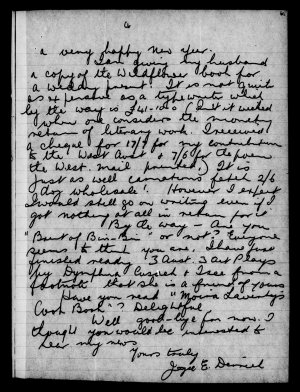 6
a very happy New Year.
I am giving my husband
a copy of the Wildflower book for
a wedding present! It is not quite
as expensive as a typewriter which
by the way is £41-10-0 (Isn't it wicked
when one considers the monetary
return of literary work. I received
a cheque for 17/- for my contribution
to the West Aust. + 7/6 for the poem
the West. Mail printed.) It is
just as well carnations fetch 2/6
a doz wholesale! However I expect
I would still go on writing even if I
got nothing at all in return for it.
By the way - Are you
"Brent of Bin Bin" or not? Everyone
seems to think you are. I have just
finished reading 3 Aust. 3 act Plays
by Dymphna Cusack + I see from a
footnote that she is a friend of yours
Have you read "Moira Laverty's
Cook Book"? Delightful.
Well good-bye for now. I
thought you would be interested to
hear my news
Yours truly
Joyce E. Daniel